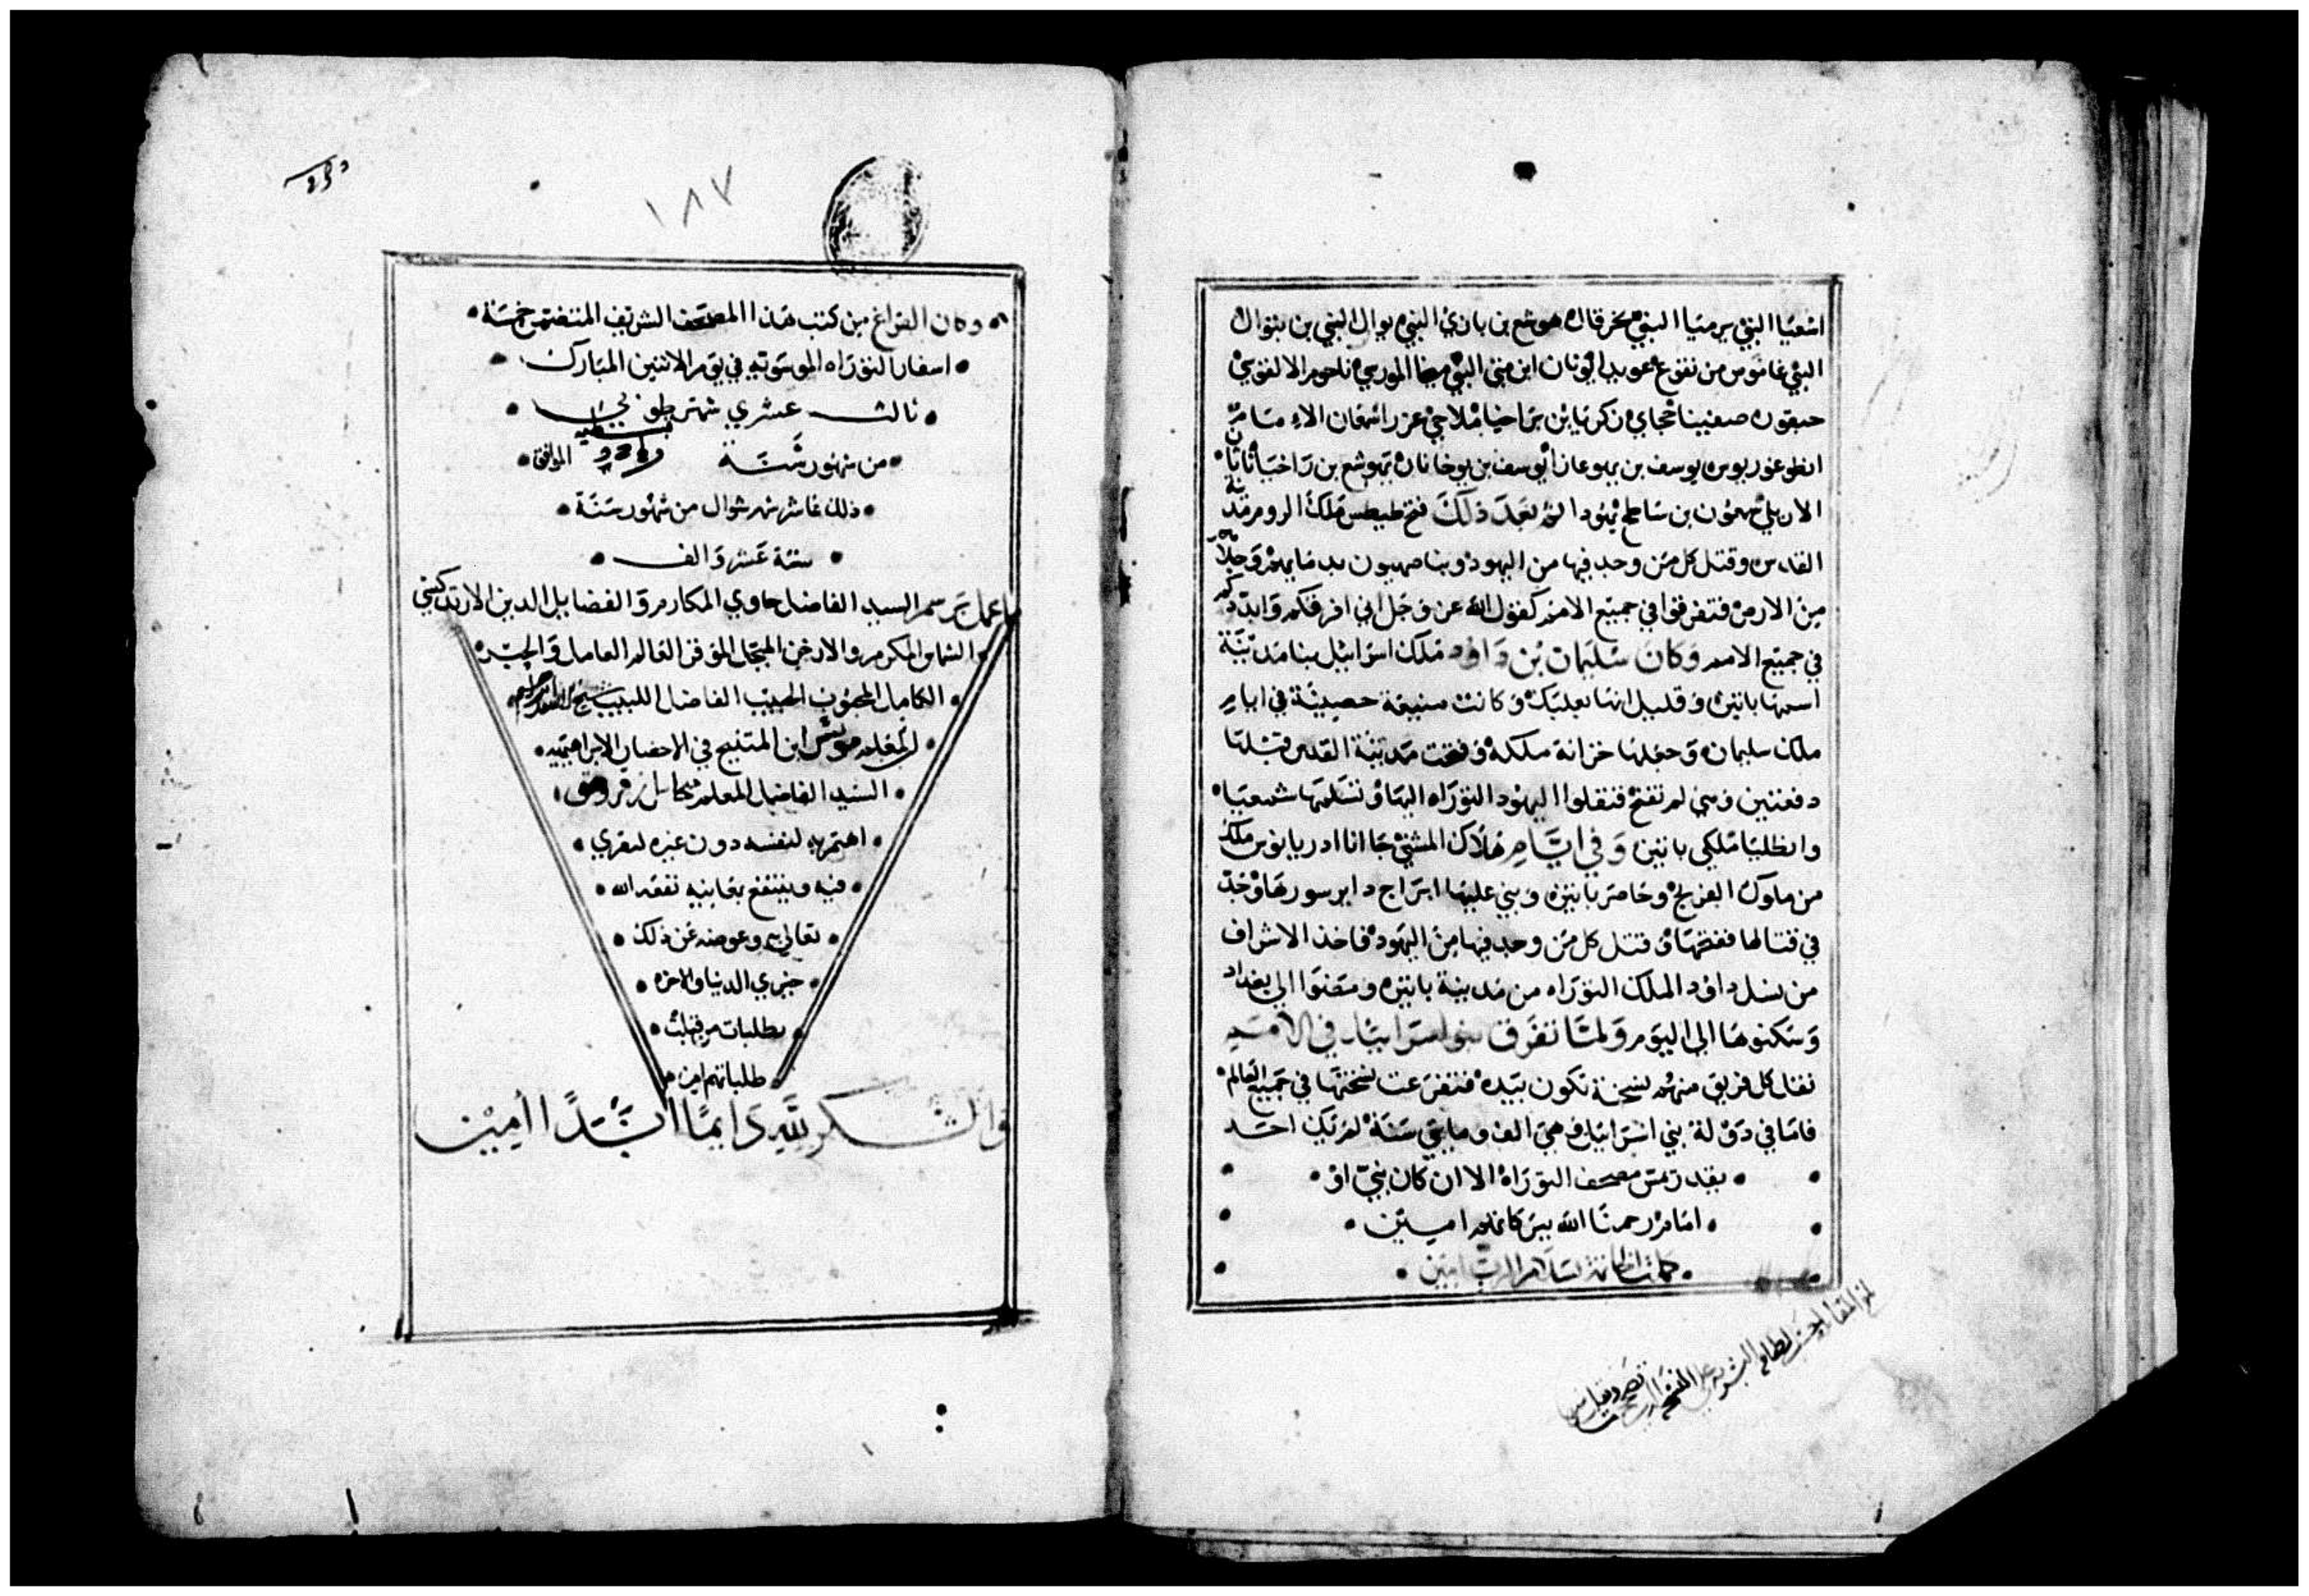 اشعيا النبي يرميا النبي حزقال هوشع بن باري النبي يوال النبي بن بتوال
النبي عاموس من تقوع عوبديا يونان ابن متى النبي ميخا الموربي ناحوم الالقوشي
حبقوق صفنيا حجاي زكريا بن براخيا ملاخي
يوسف بن يوخانان يهوشع بن راخيا
الاربلي يهودا ثم بعد ذلك فتح طيطس ملك الروم مدينة
القدس وقتل كل من وجد فيها من اليهود وبنا صهيون بدمايهم وجلاهم
من الارض فتفرقوا في جميع الامم كقول الله عز وجل اني افرقكم وابددكم
في جميع الامم وكان سليمان بن داود ملك اسرائيل بنا مدينة
اسمها باتيره وقيل انها بعلبك وكانت منيعة حصينة في ايام
ملك سليمان وجعلها خزانة ملكه وفتحت مدينة القدس قبلها
دفعتين وهي لم تفتح فنقلوا اليهود التوراه اليها وتسلمها شمعيا
وابطليا ملكي باتير وفي ايام هلاك المشني جا انا ادريانوس ملك
من ملوك الفرنج وحاصر باتيره وبني عليها ابراج داير سورها وجد
في قتالها ففتحها وقتل كل من وجد فيها من اليهود فاخذ الاشراف
من نسل داود الملك التوراه من مدينة باتيره ومضوا الى بغداد
وسكنوها الى اليوم ولما تفرق بنو اسرائيل في الامم
نقل كل فريق منهم نسخة تكون بيده فتفرعت نسختها في جميع العالم
فاما في دولة بني اسرائيل وهي الف ومايتي سنة لم يكن احد
يقدر يمس مصحف التوراه الا ان كان نبي او
امام رحمنا الله ببركاتهم اميين
بسلام الرب امين
وكان الفراغ من كتب هذا المصحف الشريف المتضمن خمسة
اسفار التوراه الموسويه في يوم الاثنين المبارك
ثالث عشري شهر طوبي
من شهور سنة الموافق
ذلك عاشر شهر شوال من شهور سنة
ستة عشر والف
مما عمل برسم السيد الفاضل حاوي المكارم والفضايل الدين الارتدكسي
الشماس المكرم والارخن المبجل الموقر العالم العامل والحبر
الكامل المحبوب الحبيب الفاضل اللبيب
ابن المتنيح في الاحضان الابراهيميه
السيد الفاضل المعلم ميخاييل
اهتم به لنفسه دون غيره ليقري
فيه وينتفع بمعانيه نفعه الله
تعالى به وعوضه عن ذلك
خيري الدنيا والاخره
بطلبات من قبلت
طلباتهم امين
والشكر لله دايما ابدا امين
١٨٧